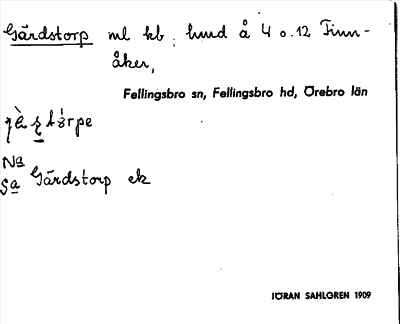 Gärdstorp ml kb, hund å 4 o. 12 Finn-
åker,
Fellingsbro sn, Fellingsbro hd, Örebro län
Na
Sa Gärdstorp ek
JÖRAN SAHLGREN 1909